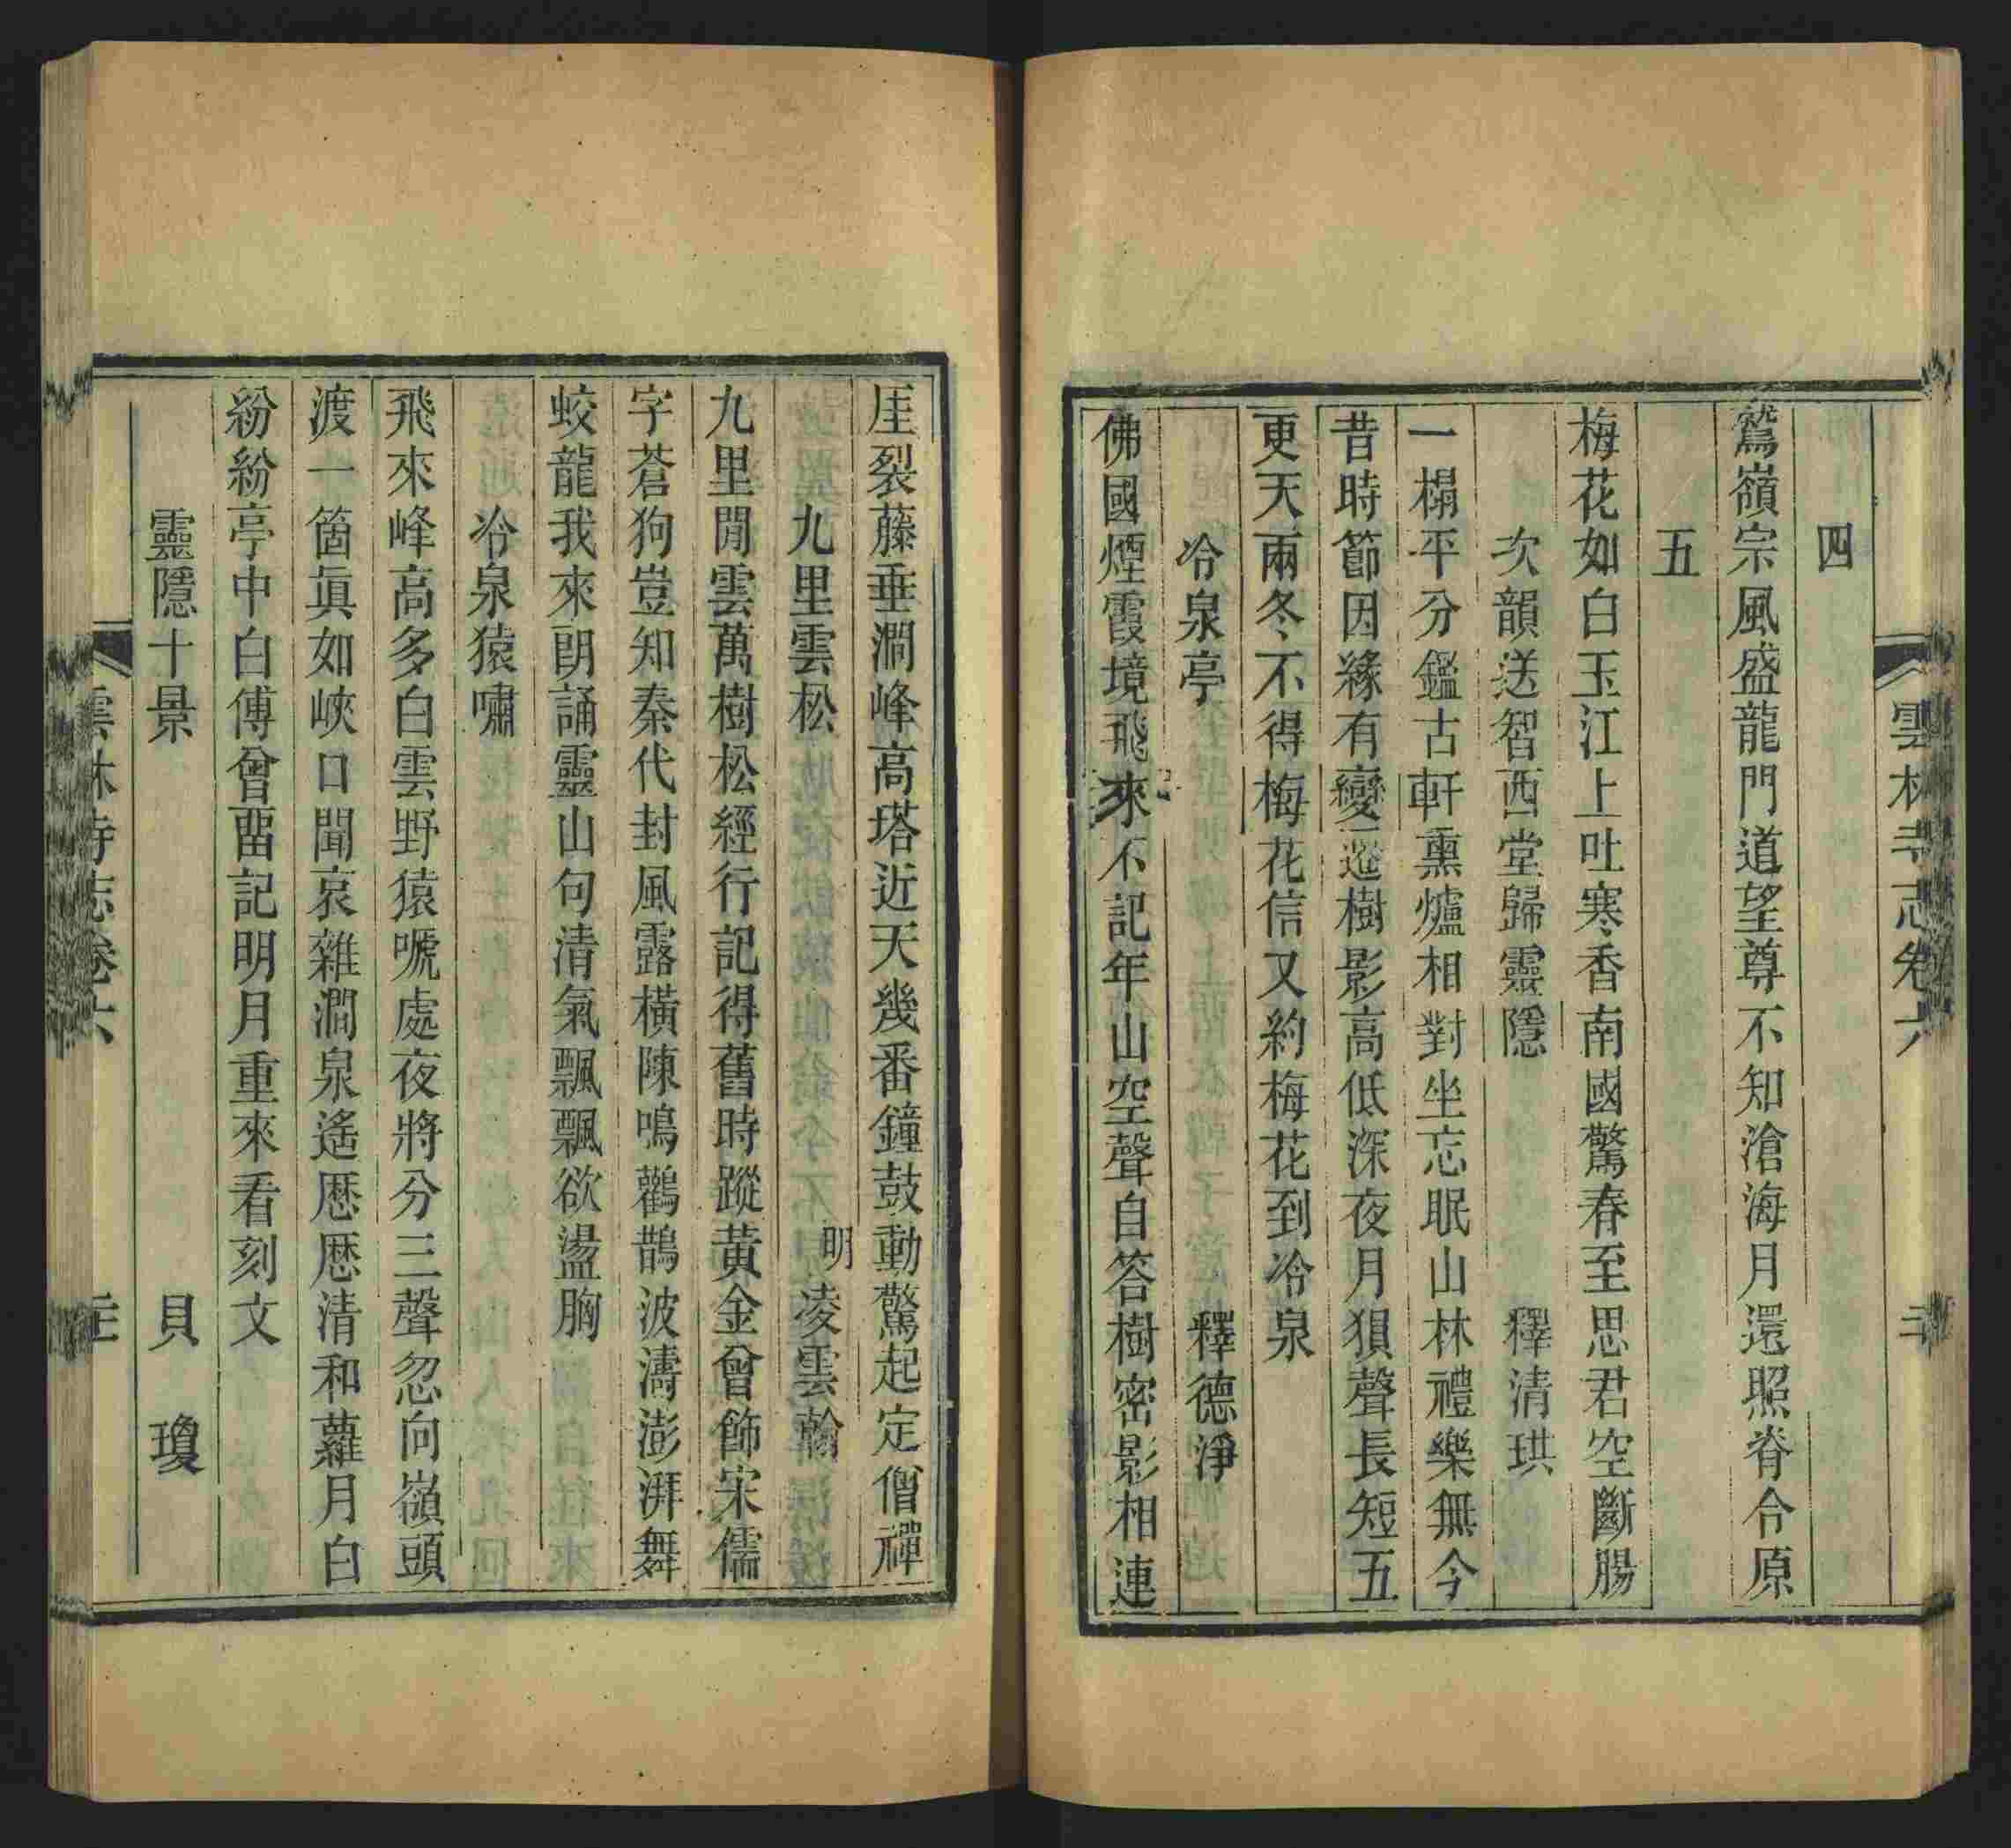 雲林寺志卷六
四
鷲嶺宗風盛龍門道望尊不知滄海月還照脊合原
五
梅花如白玉江上吐寒香南國驚春至思君空斷腸
次韻送智西堂歸靈隱 釋清珙
一榻平分鑑古軒熏爐相對坐忘眠山林禮樂無今
昔時節因緣有變遷樹影高低深夜月狽聲長短五
更天兩冬不得梅花信又約梅花到冷泉
冷泉亭 釋德淨
佛國煙霞境飛來不記年山空聲自答樹密影相連
厓裂藤垂澗峰高塔近天幾番鐘鼓動驚起定僧禪
九里雲松 明凌雲翰
九里閒雲萬樹松經行記得舊時蹤黃金曾飾宋儒
字蒼狗豈知秦代封風露橫陳鳴鸛鵲波濤澎湃舞
蛟龍我來朗誦靈山句清氣飄飄欲盪胸
冷泉猿嘯
飛來峰高多白雲野猿嘷處夜將分三聲忽向嶺頭
渡一箇眞如峽口聞哀雜澗泉遙歷歷清和蘿月白
紛紛亭中白傅曾畱記明月重來看刻文
靈隱十景 貝瓊
雲林寺志卷六